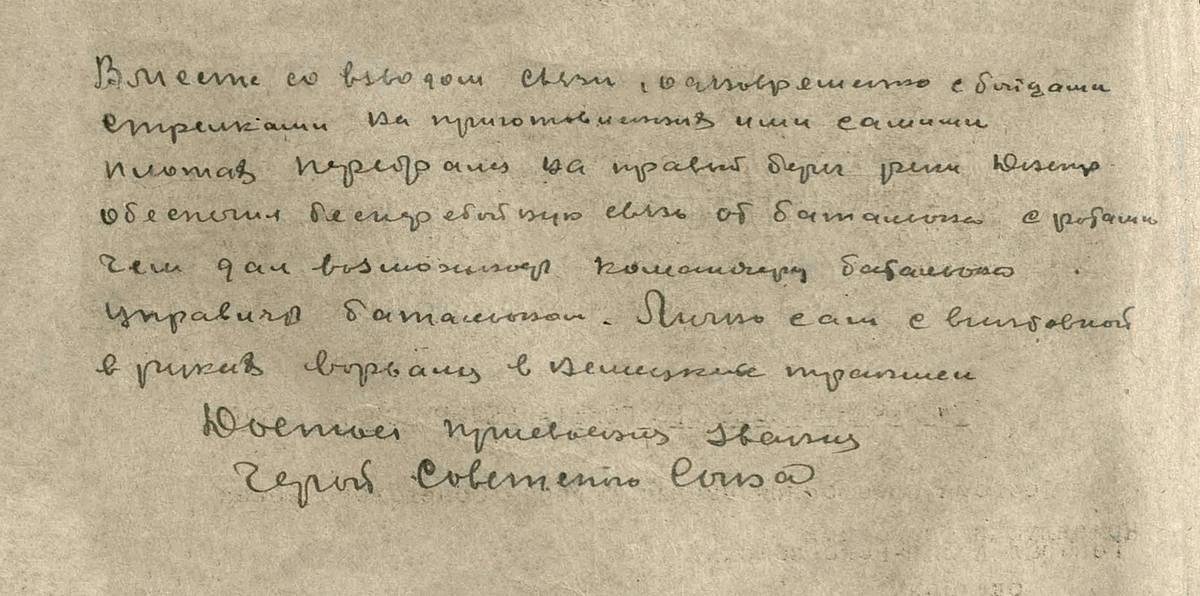 Вместе со взводом связи, одновременно с бойцами
стрелками на приготовленных ими самими
плотах перебрался на правый берег реки Днепр
обеспечил бесперебойную связь от батальона с ротами
чем дал возможность командиру батальона
управлять батальоном. Лично сам с винтовкой
в руках ворвался в немецкие траншеи
Достоин присвоения звания
Герой Советского Союза